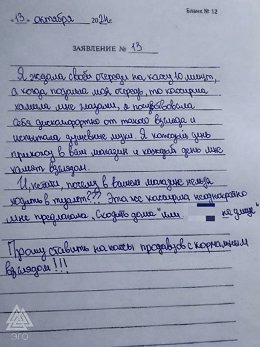 Бланк № 12
13 октября 2024г.
ЗАЯВЛЕНИЕ № 13
Я ждала своей очереди на кассу 10 минут,
а когда подошла моя очередь, то кассирша
камала мне глазами, я почувствовала
себя дискомфортно от такого взгляда и
испытала душевные муки. Я каждый день
прихожу в ваш магазин и каждый день мне
камят взглядом.
И, кстати, почему в вашем магазине нельзя
ходить в туалет??? Эта же кассирша неоднократно
мне предлагала „Сходить дома" или
не дище"
Прошу ставить на кассы продавцов с нормальным
взглядом!!!
ЭГО